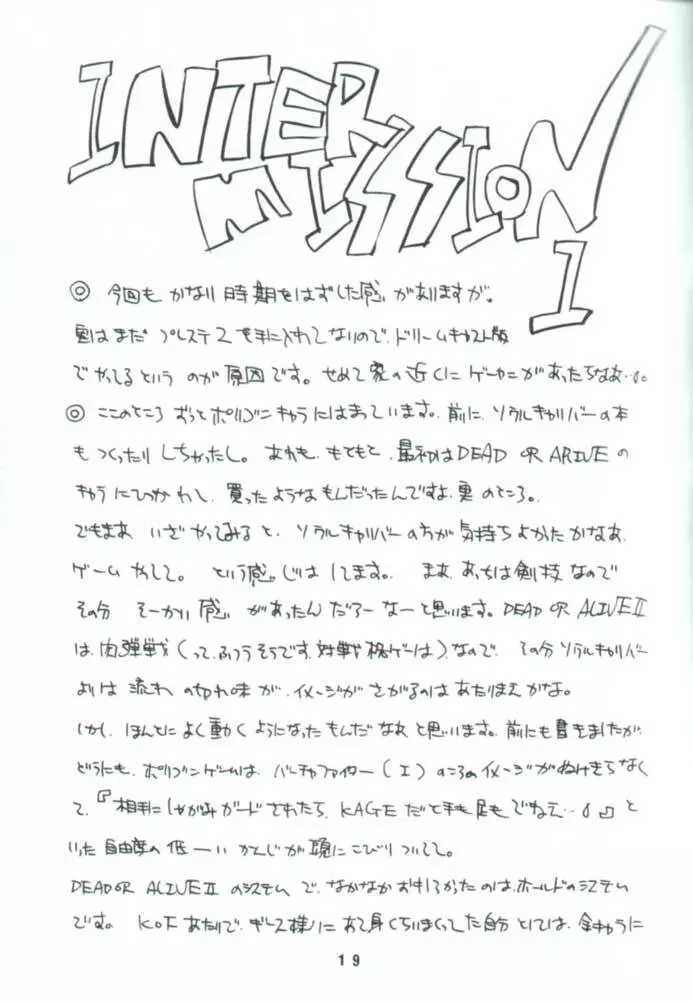 INTER
MISSION
1
◎ 今回も かなり時期をはずした感じがありますが。
実はまだ プレステ2を手に入れてないので、ドリームキャスト版
でやってるという のが原因です。せめて家の近くにゲーセンがあったらなあ…。
◎ ここのところ ずっとポリゴンキャラにはまっています。前に、ソウルキャリバーの本
もつくったりしちゃったし。あれも、もともと、最初はDEAD OR ARIVEの
キャラにひかれて、買ったようなもんだったんですよ、実のところ。
でもまあ いざやってみると、ソウルキャリバーの方が気持ちよかったかなあ、
ゲームやしてて。という感じはしてます。まあ、あっちは剣技なので
その分 そーかい感じがあったんだろーなーと思います。DEAD OR ALIVE II
は、肉弾戦(って、ふつうそうです、対戦格ゲーは)なので、その分ソウルキャリバー
よりは 流れの切れ味が、イメージがさがるのはあたりまえかな。
しかし、ほんとによく動くようになったもんだなあと思います。前にも書きましたが、
どうにも、ポリゴンゲームは、バーチャファイター(I)のころのイメージがぬけきらなく
て、『相手にしゃがみガードされたら、KAGEだと手も足もでねえ…』と
いった自由度の低ーいかんじが頭にこびりついてて。
DEAD OR ALIVE IIのシステムで、なかなかおもしろかったのは、ホールドのシステム
です。KOFあたりで、ギース様にあて身くらいまくってた自分としては、全キャラに
19